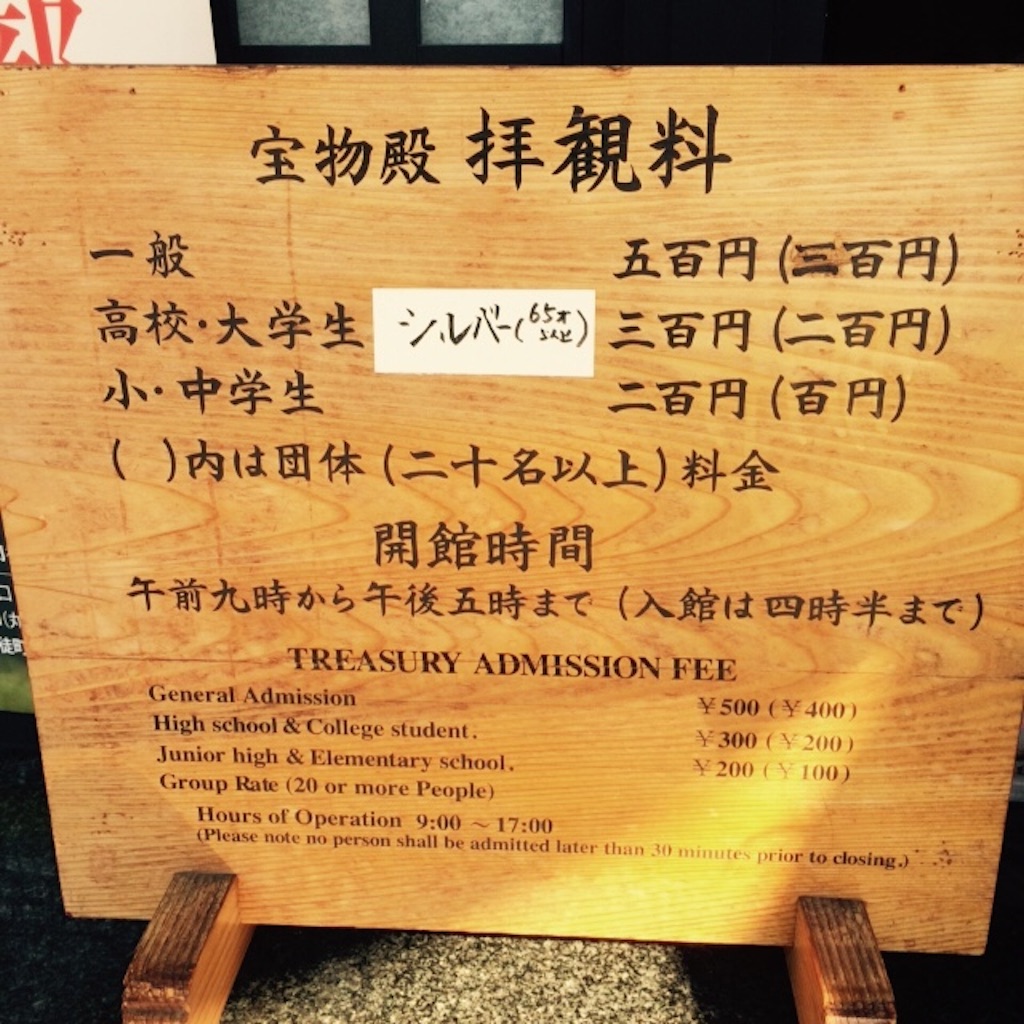 宝物殿 拝観料
一般 五百円 (三百円)
高校・大学生 シルバー(65才以上) 三百円 (二百円)
小・中学生 二百円 (百円)
( )内は団体 (二十名以上) 料金
開館時間
午前九時から午後五時まで (入館は四時半まで)
TREASURY ADMISSION FEE
General Admission ¥500 (¥400)
High school & College student. ¥300 (¥200)
Junior high & Elementary school. ¥200 (¥100)
Group Rate (20 or more People)
Hours of Operation 9:00 ~ 17:00
(Please note no person shall be admitted later than 30 minutes prior to closing.)